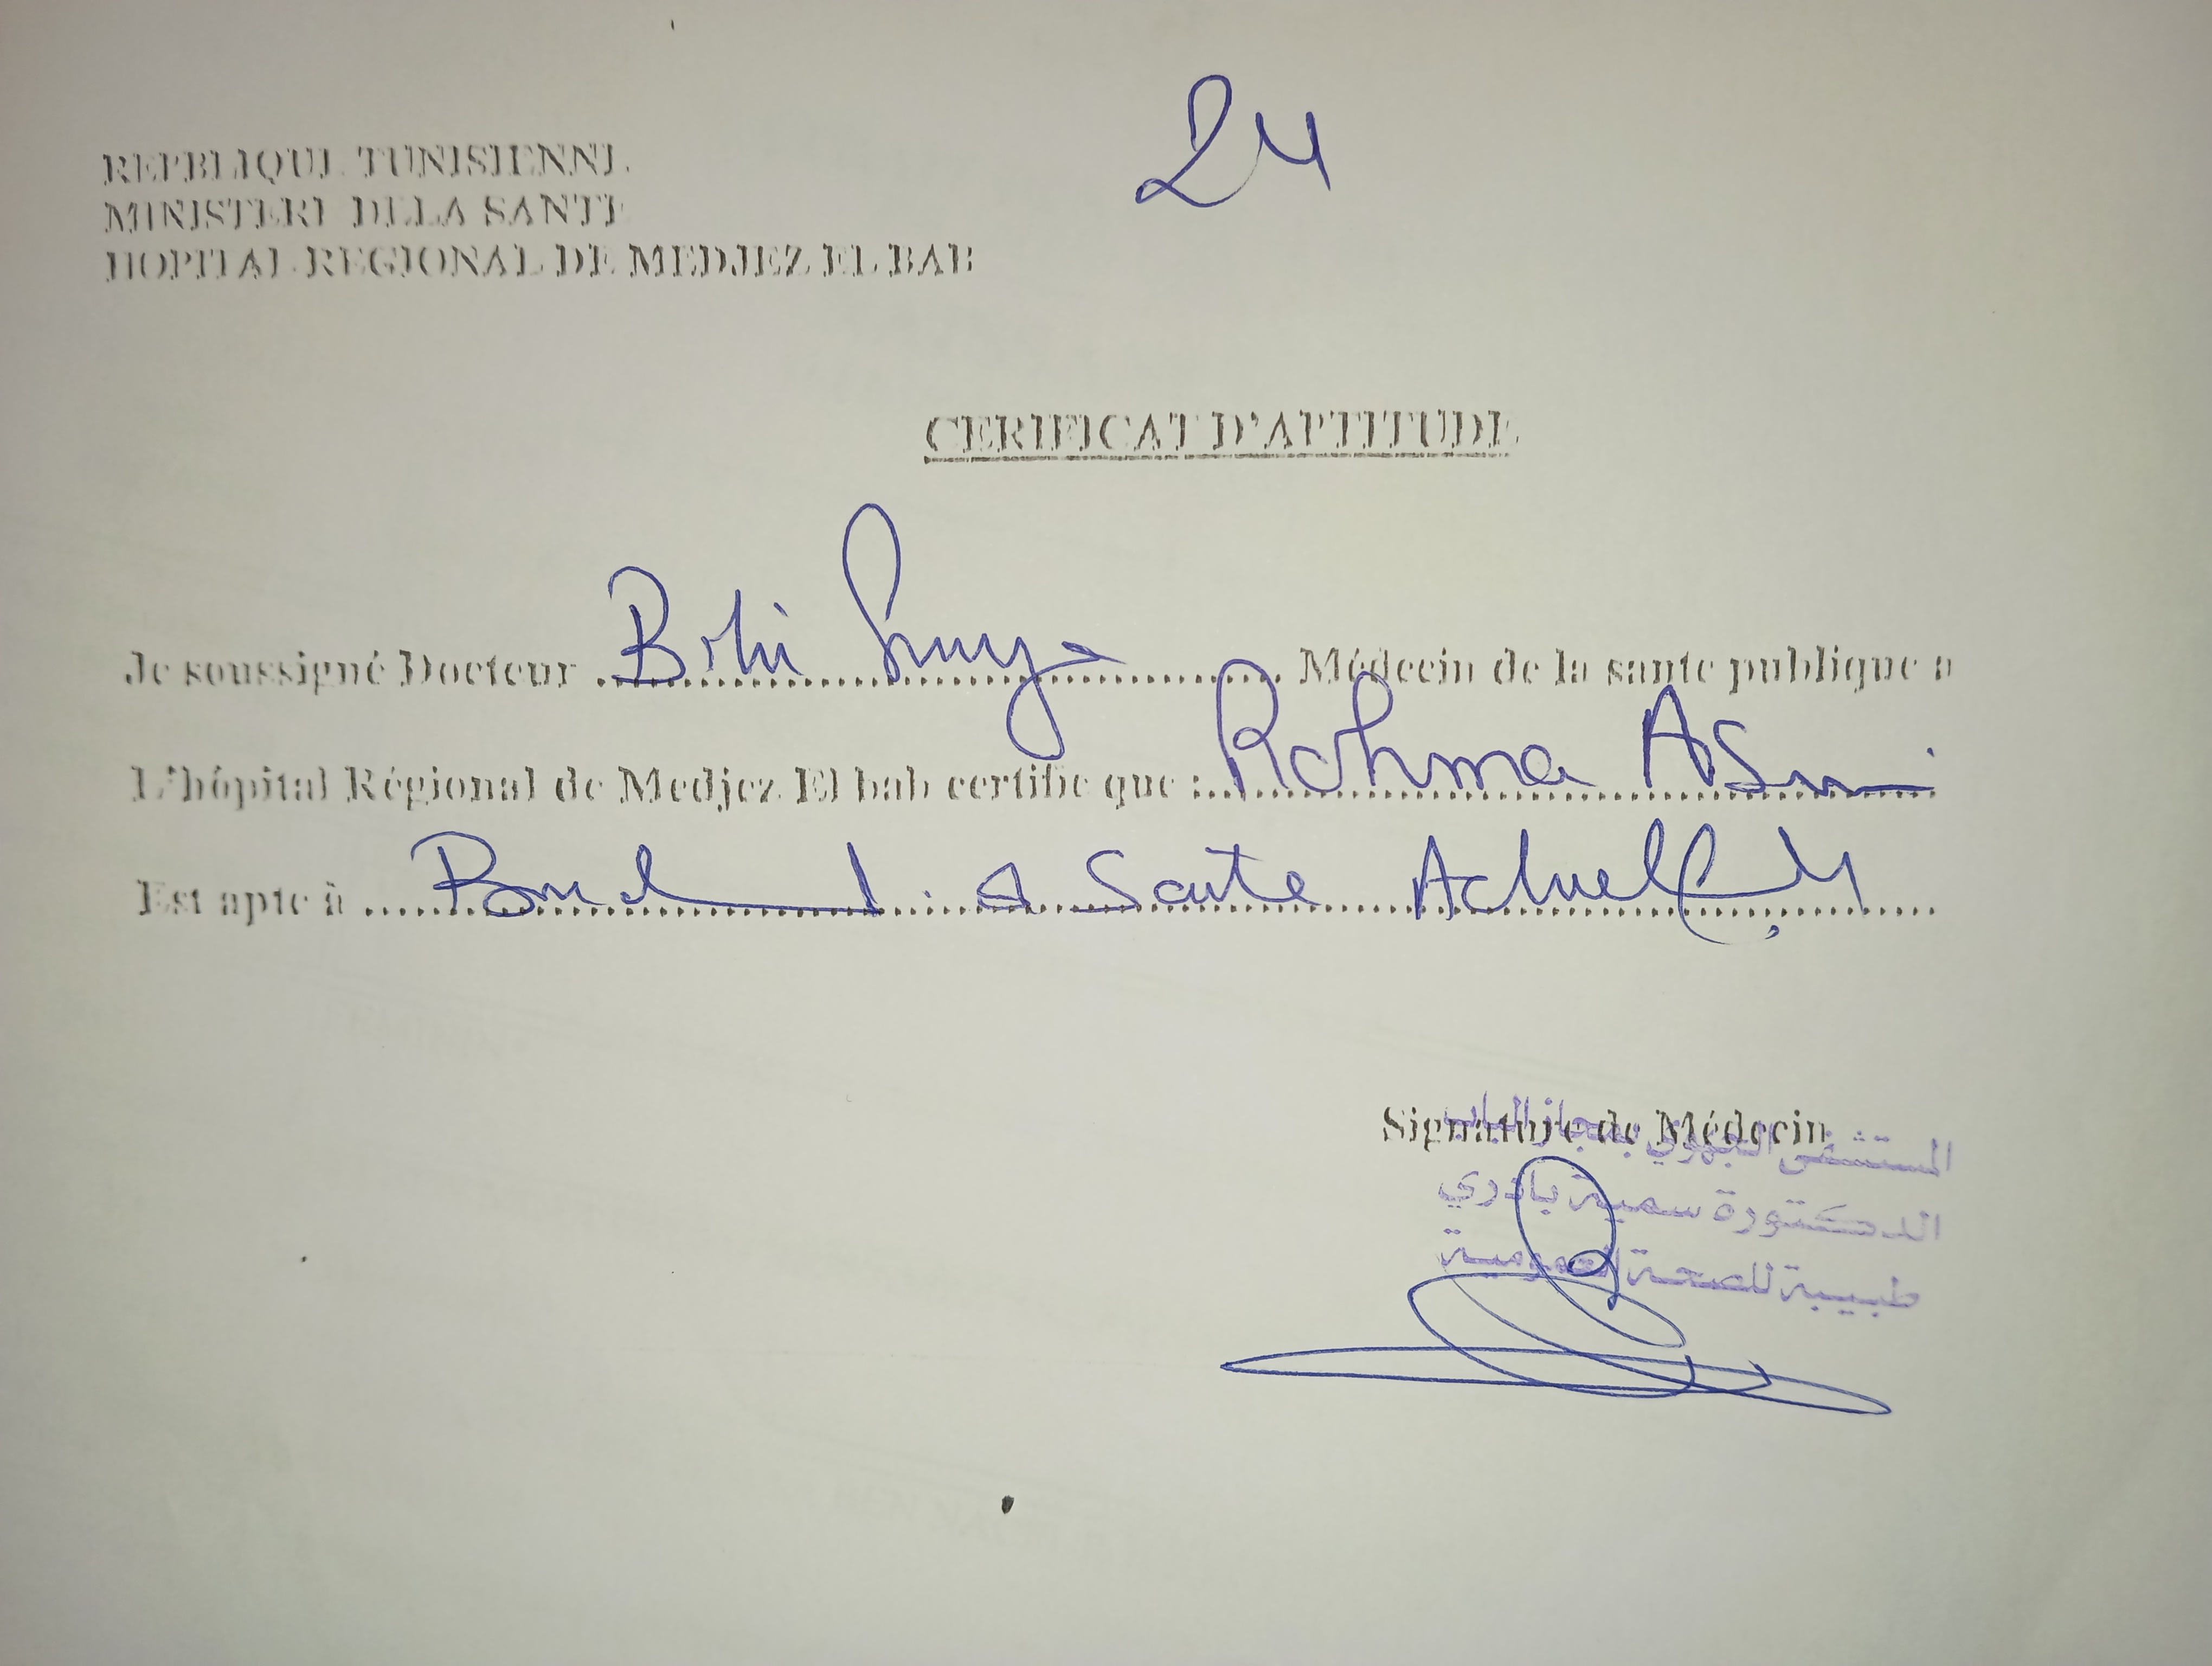 24
REPBLIQUE TUNISIENNE
MINISTERE DELA SANTE
HOPITAL REGIONAL DE MEDJEZ EL BAB
CERIFICAT D'APTITUDE
Je soussigné Docteur Médecin de la sante publique a
L'hôpital Régional de Medjez El bab certifie que : Rahma
Est apte à Sante
Signature de Médecin
المستشفى الجهوي بمجاز الباب
الدكتورة سمية بادري
طبيبة للصحة العمومية